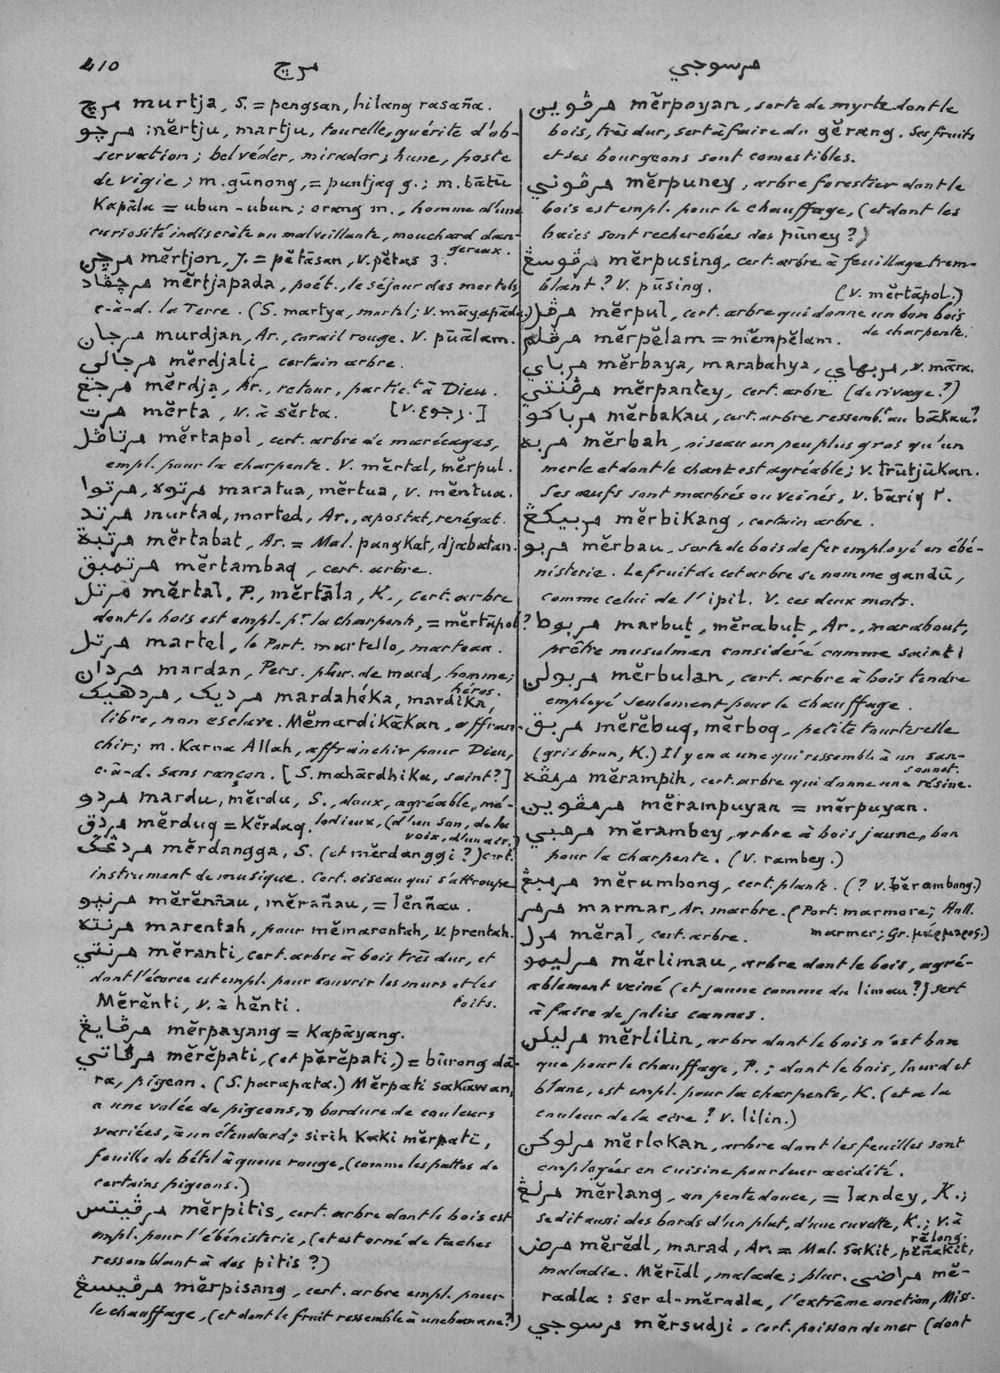 410
مرچ
مرسوجي
مرچ murtja, S. = pengsan, hilang rasaña.
مرچو mĕrtju, martju, tourelle, guérite d'ob-
servation; belvéder, mirador; hune, poste
de vigie; m. gūnong, = puntjaq g.; m. bātū
Kapāla = ubun-ubun; orang m., homme d'une
curiosité indiscrète ou malveillante, mouchard dan-
gereux.
مرچن mĕrtjon, J. = pĕtāsan, v. pĕtas 3.
مرچڤاد mĕrtjapada, poét., le séjour des mortels,
c-à-d. la Terre. (S. martya, mortel; v. māyapāda.)
مرجان murdjan, Ar., corail rouge. V. pūālam.
مرجالي mĕrdjali, certain arbre.
mĕrdja, Ar., retour, partict. à Dieu.
[v. رجوع.]
مرت mĕrta, v. à sĕrta.
مرتاڤل mĕrtapol, cert. arbre de marécages,
empl. pour la charpente. V. mĕrtal, mĕrpul.
مرتوا, مرتوه maratua, mĕrtua, v. mĕntua.
مرتد murtad, morted, Ar., apostat, renégat.
مرتبة mĕrtabat, Ar. = Mal. pangkat, djabatan.
مرتمبق mĕrtambaq, cert. arbre.
مرتل mĕrtal, P., mĕrtāla, K., cert. arbre
dont le bois est empl. pr. la charpente, = mĕrtāpol?
مرتل martel, le Port. martello, marteau.
مردان mardan, Pers. plur. de mard, homme;
héros.
مرديک, مردهيک mardahéka, mardika,
libre, non esclave. Mĕmardikākan, affran-
chir; m. Karna Allah, affranchir pour Dieu,
c-à-d. sans rançon. [S. mahārdhika, saint?]
مردو mardu, mĕrdu, S., doux, agréable, mé-
lodieux, (d'un son, de la
voix, d'un air.)
مردق mĕrduq = Kĕrdaq.
مردڠݢ mĕrdangga, S. (et mĕrdanggi?) cert.
instrument de musique. Cert. oiseau qui s'attroupe
مرنيو mĕrĕññau, mĕrañau, = lĕññau.
مرنته marentah, pour mĕmarentah, v. prentah.
مرنتي mĕranti, cert. arbre à bois très dur, et
dont l'écorce est empl. pour couvrir les murs et les
toits.
Mĕrĕnti, v. à hĕnti.
مرڤايڠ mĕrpayang = Kapāyang.
مرڤاتي mĕrĕpati, (et pĕrĕpati,) = būrong dā-
ra, pigeon. (S. parapata.) Mĕrpati sakāwan,
a une volée de pigeons, b bordure de couleurs
variées, à un étendard; sirih kaki mĕrpatī,
feuille de bétel à queue rouge, (comme les pattes de
certains pigeons.)
مرڤيتس mĕrpitis, cert. arbre dont le bois est
empl. pour l'ébénisterie, (et est orné de taches
ressemblant à des pitis?)
مرڤيسڠ mĕrpisang, cert. arbre empl. pour
le chauffage, (et dont le fruit ressemble à une banane?)
مرڤوين mĕrpoyan, sorte de myrte dont le
bois, très dur, sert à faire du gĕrang. Ses fruits
et ses bourgeons sont comestibles.
مرڤوني mĕrpuney, arbre forestier dont le
bois est empl. pour le chauffage, (et dont les
baies sont recherchées des pūney?)
مرڤوسڠ mĕrpusing, cert. arbre à feuillage trem-
blant? V. pūsing.
(V. mĕrtāpol.)
مرڤل mĕrpul, cert. arbre qui donne un bon bois
de charpente.
مرڤلم mĕrpĕlam = mĕmpĕlam.
مرباي, مربهاي mĕrbaya, marabahya, v. māra.
مرڤنتي mĕrpantey, cert. arbre (de rivage?)
مرباكو mĕrbakau, cert. arbre ressembt. au bākau?
مربه mĕrbah, oiseau un peu plus gros qu'un
merle et dont le chant est agréable; v. trūtjūkan.
Ses œufs sont marbrés ou veinés, v. bāriq ٢.
مربيكڠ mĕrbikang, certain arbre.
مربو mĕrbau, sorte de bois de fer employé en ébé-
nisterie. Le fruit de cet arbre se nomme gandū,
comme celui de l'ipil. V. ces deux mots.
مربوط marbuṭ, mĕrabuṭ, Ar., marabout,
prêtre musulman considéré comme saint.
مربولن mĕrbulan, cert. arbre à bois tendre
employé seulement pour le chauffage.
مربق mĕrĕbuq, mĕrboq, petite tourterelle
(gris brun, K.) Il y en a une qui ressemble à un san-
sonnet.
مرمڤه mĕrampih, cert. arbre qui donne une résine.
مرمڤوين mĕrampuyan = mĕrpuyan.
مرمبي mĕrambey, arbre à bois jaune, bon
pour la charpente. (V. rambey.)
مرمبڠ mĕrumbong, cert. plante. (? v. bĕrambong.)
مرمر marmar, Ar. marbre. (Port. marmore; Holl.
marmer; Gr. μάρμαρος.)
مرل mĕral, cert. arbre.
مرليمو mĕrlimau, arbre dont le bois, agré-
ablement veiné (et jaune comme du limau?) sert
à faire de jolies cannes.
مرليلن mĕrlilin, arbre dont le bois n'est bon
que pour le chauffage, P.; dont le bois, lourd et
blanc, est empl. pour la charpente, K. (et a la
couleur de la cire? v. lilin.)
مرلوكن mĕrlokan, arbre dont les feuilles sont
employées en cuisine pour leur acidité.
مرلڠ mĕrlang, en pente douce, = landey, K.;
se dit aussi des bords d'un plat, d'une cuvette, K.; v. à
rĕlong.
مرض mĕrĕdl, marad, Ar. = Mal. sakit, pĕñakit,
maladie. Mĕrīdl, malade; plur. مراضي mĕ-
radla: ser al-mĕradla, l'extrême onction, Miss.
مرسوجي mĕrsudji, cert. poisson de mer (dont